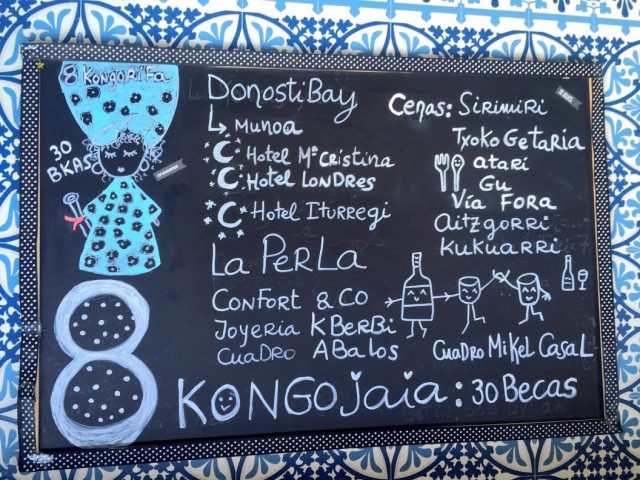 8 KONGORifa
30 BKAS
DONOSTiBAY
MUNOA
HOTEL Mª CRISTINA
HOTEL LONDRES
HOTEL ITURREGI
LA PERLA
CONFORT & CO
JOYERIA KBERBI
CUADRO ABALOS
CENAS: SIRIMIRI
TXOKO GETARIA
ATARI
GU
VÍA FORA
AITZGORRI
KUKUARRI
CUADRO MIKEL CASAL
8 KONGOJAIA: 30 BECAS